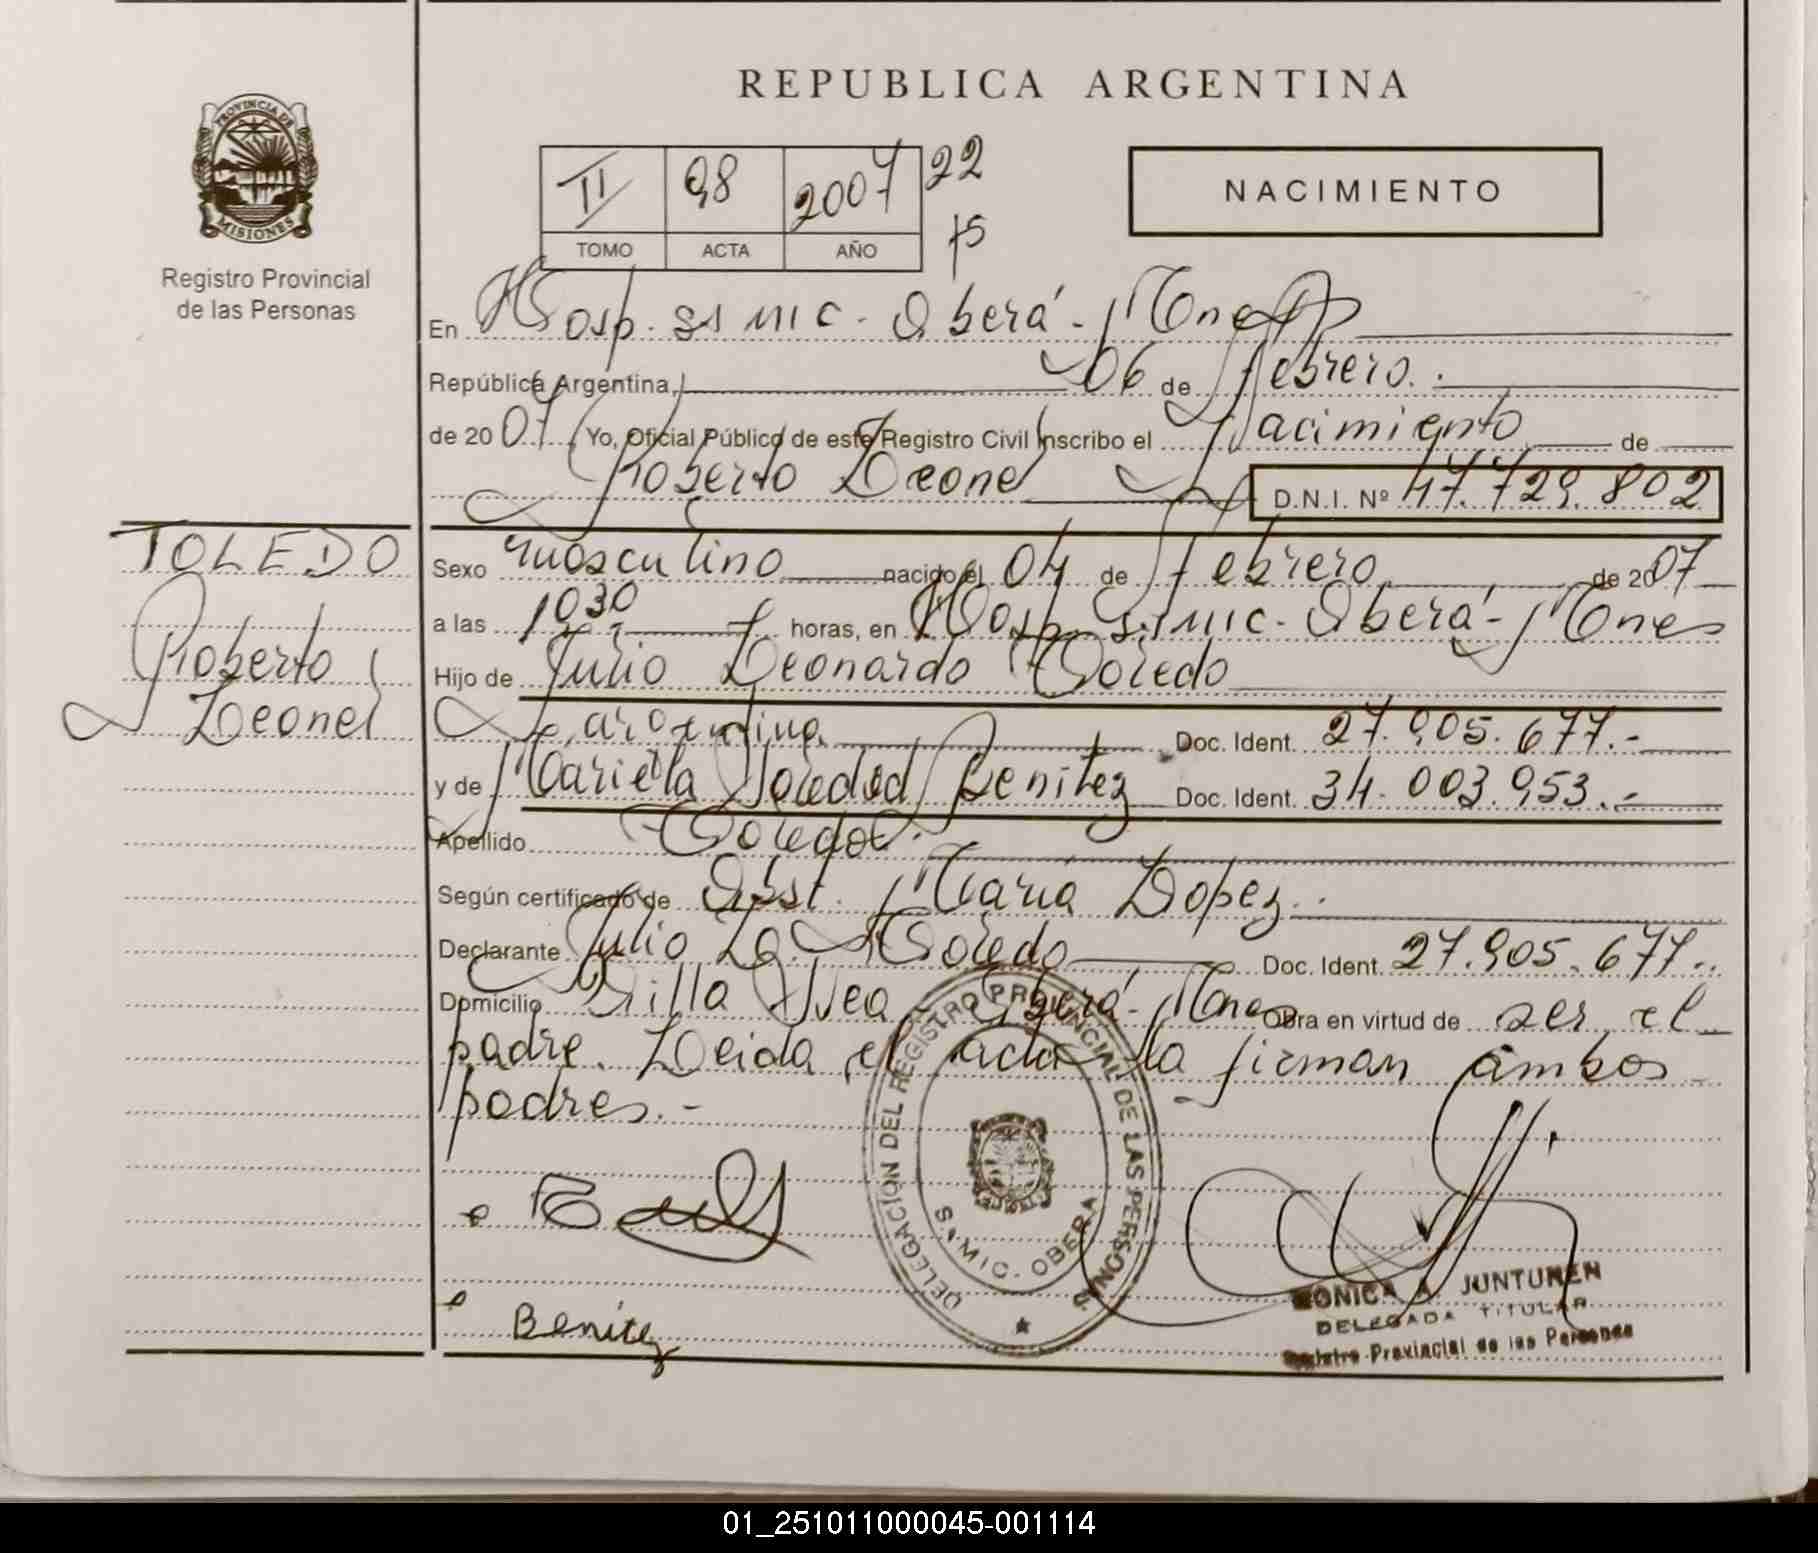 REPUBLICA ARGENTINA
PROVINCIA DE MISIONES
Registro Provincial
de las Personas
II 98 2007 22
TOMO ACTA AÑO 75
NACIMIENTO
En Hosp. SAMIC - Oberá - Mnes
República Argentina, 06 de febrero.
de 2007 Yo, Oficial Público de este Registro Civil inscribo el Nacimiento de
Roberto Leonel D.N.I. Nº 47.729.802
TOLEDO
Roberto
Leonel
Sexo masculino nacido el 04 de febrero de 2007
a las 10,30 horas, en Hosp. SAMIC - Oberá - Mnes
Hijo de Julio Leonardo Toledo
argentina Doc. Ident. 27.905.677.-
y de Mariela Soledad Benitez Doc. Ident. 34.003.953.-
Apellido Toledo.
Según certificado de Obst. María Lopez.
Declarante Julio L. Toledo Doc. Ident. 27.905.677.
Domicilio Villa Oberá - Mnes Obra en virtud de ser el
padre. Leida el acta la firman ambos
padres.-
DELEGACION DEL REGISTRO PROVINCIAL DE LAS PERSONAS
SAMIC. OBERA
Benitez
MONICA A JUNTUNEN
DELEGADA TITULAR
Registro Provincial de las Personas
01_251011000045-001114